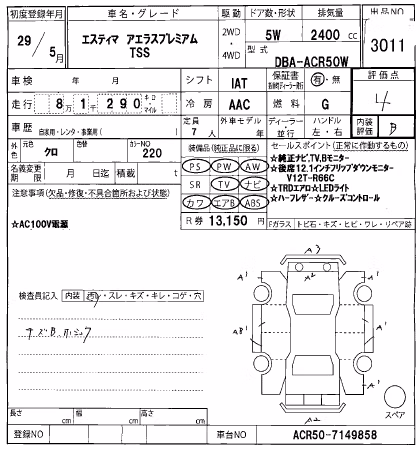 初度登録年月
29年 5月
車名・グレード
エスティマ アエラスプレミアム
TSS
駆動
2WD
・
4WD
ドア数・形状
5W
排気量
2400 cc
型式
DBA-ACR50W
出品NO
3011
車検 年 月
シフト IAT
保証書 有・無
評価点
4
走行 8万1千290 キロ・マイル
冷房 AAC
燃料 G
車歴 自家用・レンタ・事業用( )
定員 7人
外車モデル 年
ディーラー 並行
ハンドル 左・右
内装評価 B
外色 クロ
カラーNO 220
名義変更期限 月 日迄
積載 t
装備品(純正品に限る)
PS PW AW
SR TV ナビ
カワ エアB ABS
R券 13,150 円
セールスポイント(正常に作動するもの)
★純正ナビ,TV,Bモニター
★後席12.1インチフリップダウンモニター
V12T-R66C
★TRDエアロ☆LEDライト
★ハーフレザー☆クルーズコントロール
注意事項(欠品・修復・不具合箇所および状態)
★AC100V電源
Fガラス トビ石・キズ・ヒビ・ワレ・リペア跡
検査員記入 内装 汚レ・スレ・キズ・キレ・コゲ・穴
キズB.
A1
A2
A1
A1
A1
A1
A1
A2
スペア
長さ cm
幅 cm
高さ cm
登録NO
車台NO ACR50-7149858